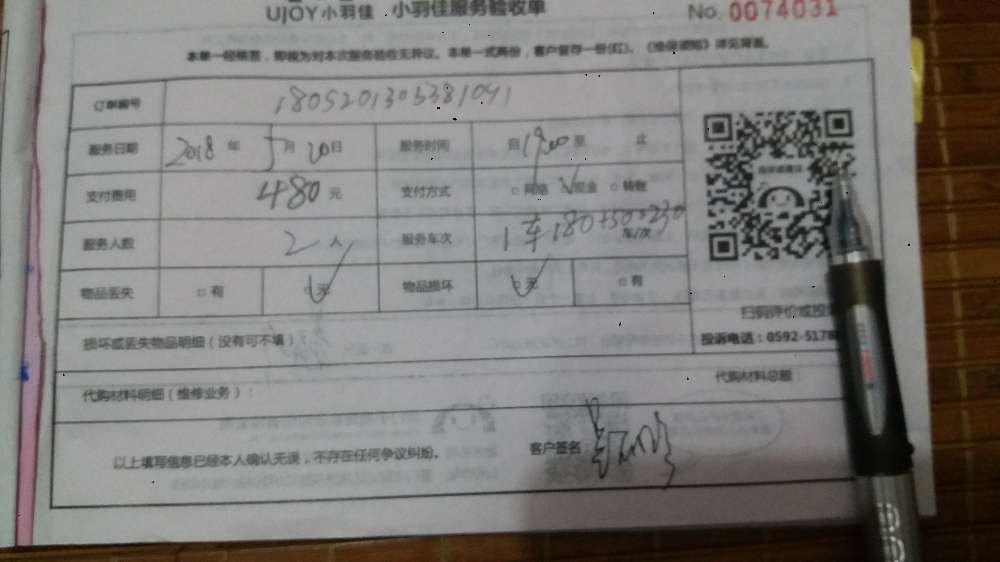 UJOY小羽佳 小羽佳服务验收单 No. 0074031
本单一经核签，即视为对本次服务验收无异议。本单一式两份，客户留存一份(红)。《维保须知》详见背面。
订单编号 1805201305381041
服务日期 2018年5月20日 服务时间 自1900至 止
支付费用 480元 支付方式 □网络 ☑现金 □转账
服务人数 2人 服务车次 1车180+50=230 车/次
物品丢失 □有 ☑无 物品损坏 ☑无 □有
扫码评价或投
损坏或丢失物品明细（没有可不填）：
投诉电话：0592-5178
代购材料明细（维修业务）：
代购材料总额：
以上填写信息已经本人确认无误，不存在任何争议纠纷。 客户签名：